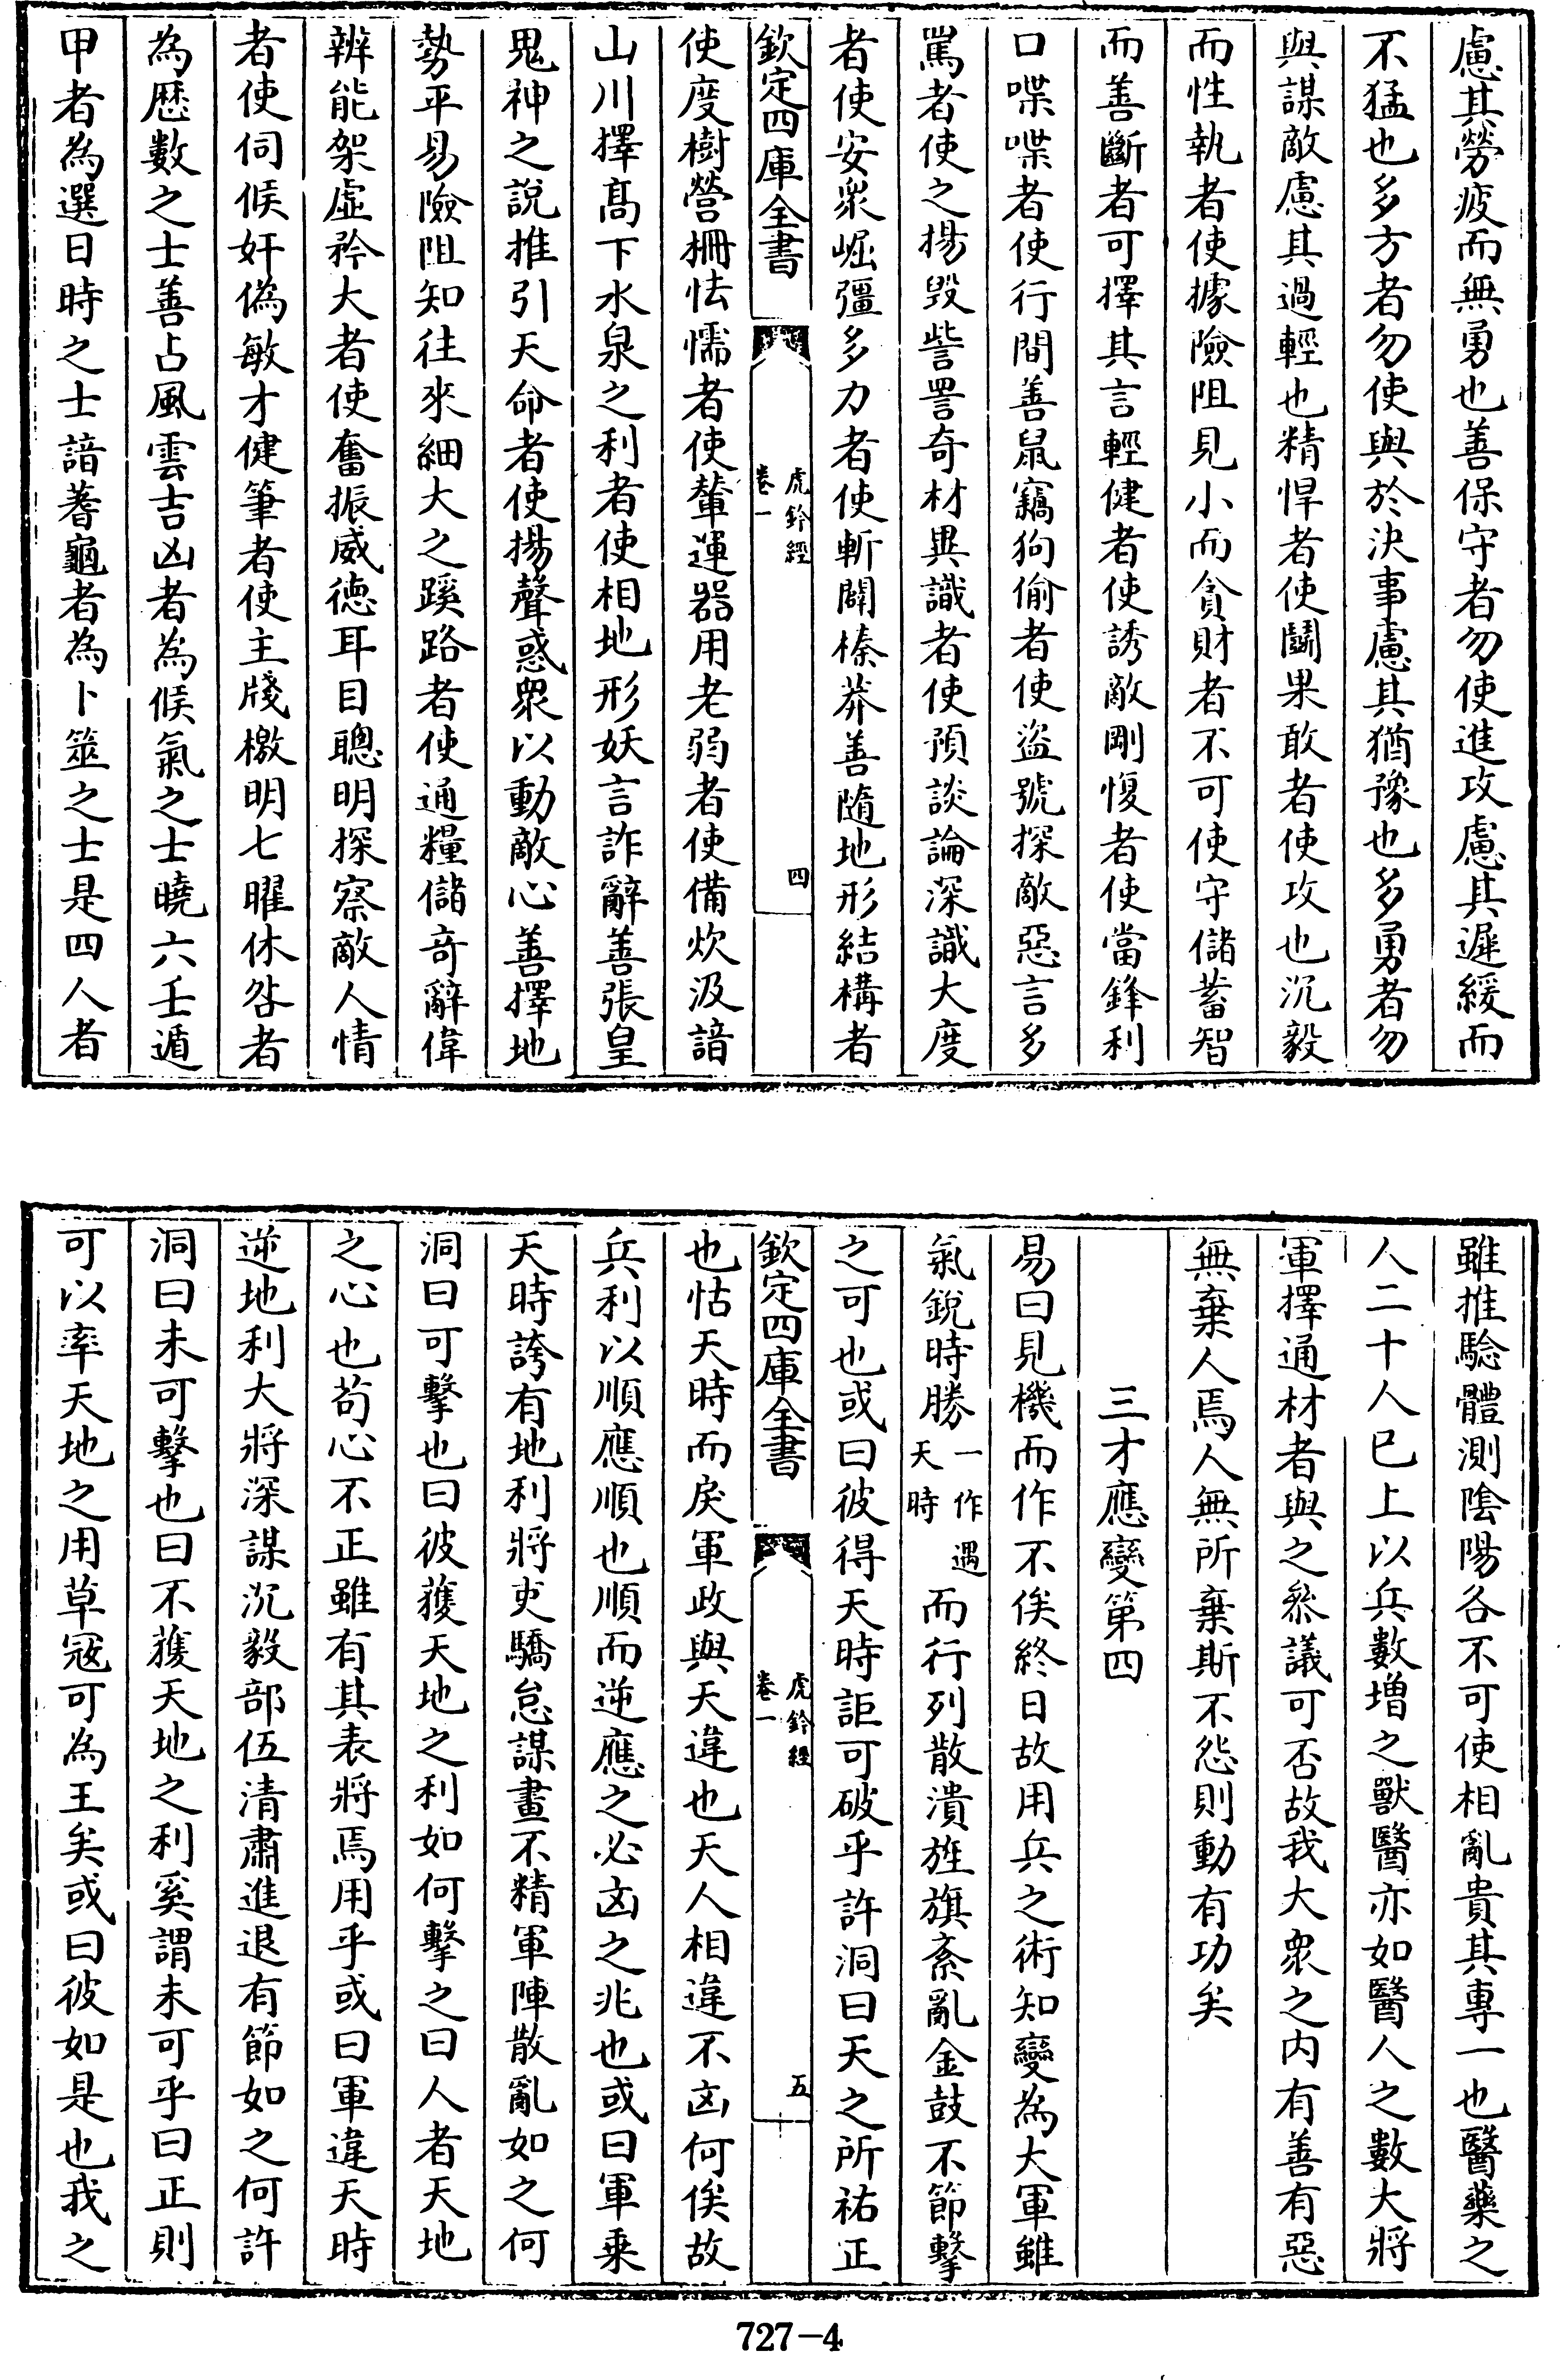 慮其勞疲而無勇也善保守者勿使進攻慮其遲緩而
不猛也多方者勿使與於決事慮其猶豫也多勇者勿
與謀敵慮其過輕也精悍者使鬬果敢者使攻也沉毅
而性執者使據險阻見小而貪財者不可使守儲蓄智
而善斷者可擇其言輕健者使誘敵剛愎者使當鋒利
口喋喋者使行間善鼠竊狗偷者使盜號探敵惡言多
罵者使之揚毀訾詈奇材異識者使預談論深識大度
者使安衆崛彊多力者使斬闢榛莽善隨地形結構者
欽定四庫全書
虎鈐經
卷一
四
使度樹營柵怯懦者使輦運器用老弱者使備炊汲諳
山川擇髙下水泉之利者使相地形妖言詐辭善張皇
鬼神之說推引天命者使揚聲惑衆以動敵心善擇地
勢平易險阻知往來細大之蹊路者使通糧儲奇辭偉
辨能架虛矜大者使奮振威德耳目聰明探察敵人情
者使伺候奸偽敏才健筆者使主牋檄明七曜休咎者
為厯數之士善占風雲吉凶者為候氣之士曉六壬遁
甲者為選日時之士諳蓍龜者為卜筮之士是四人者
雖推騐體測陰陽各不可使相亂貴其專一也醫藥之
人二十人已上以兵數増之獸醫亦如醫人之數大將
軍擇通材者與之叅議可否故我大衆之内有善有惡
無棄人焉人無所棄斯不怨則動有功矣
三才應變第四
易曰見機而作不俟終日故用兵之術知變為大軍雖
氣銳時勝一作遇天時而行列散潰旌旗紊亂金鼓不節擊
之可也或曰彼得天時詎可破乎許洞曰天之所祐正
欽定四庫全書
虎鈐經
卷一
五
也怙天時而戾軍政與天違也天人相違不凶何俟故
兵利以順應順也順而逆應之必凶之兆也或曰軍乗
天時誇有地利將吏驕怠謀畫不精軍陣散亂如之何
洞曰可擊也曰彼獲天地之利如何擊之曰人者天地
之心也苟心不正雖有其表將焉用乎或曰軍違天時
逆地利大將深謀沉毅部伍清肅進退有節如之何許
洞曰未可擊也曰不獲天地之利奚謂未可乎曰正則
可以率天地之用草冦可為王矣或曰彼如是也我之
727-4